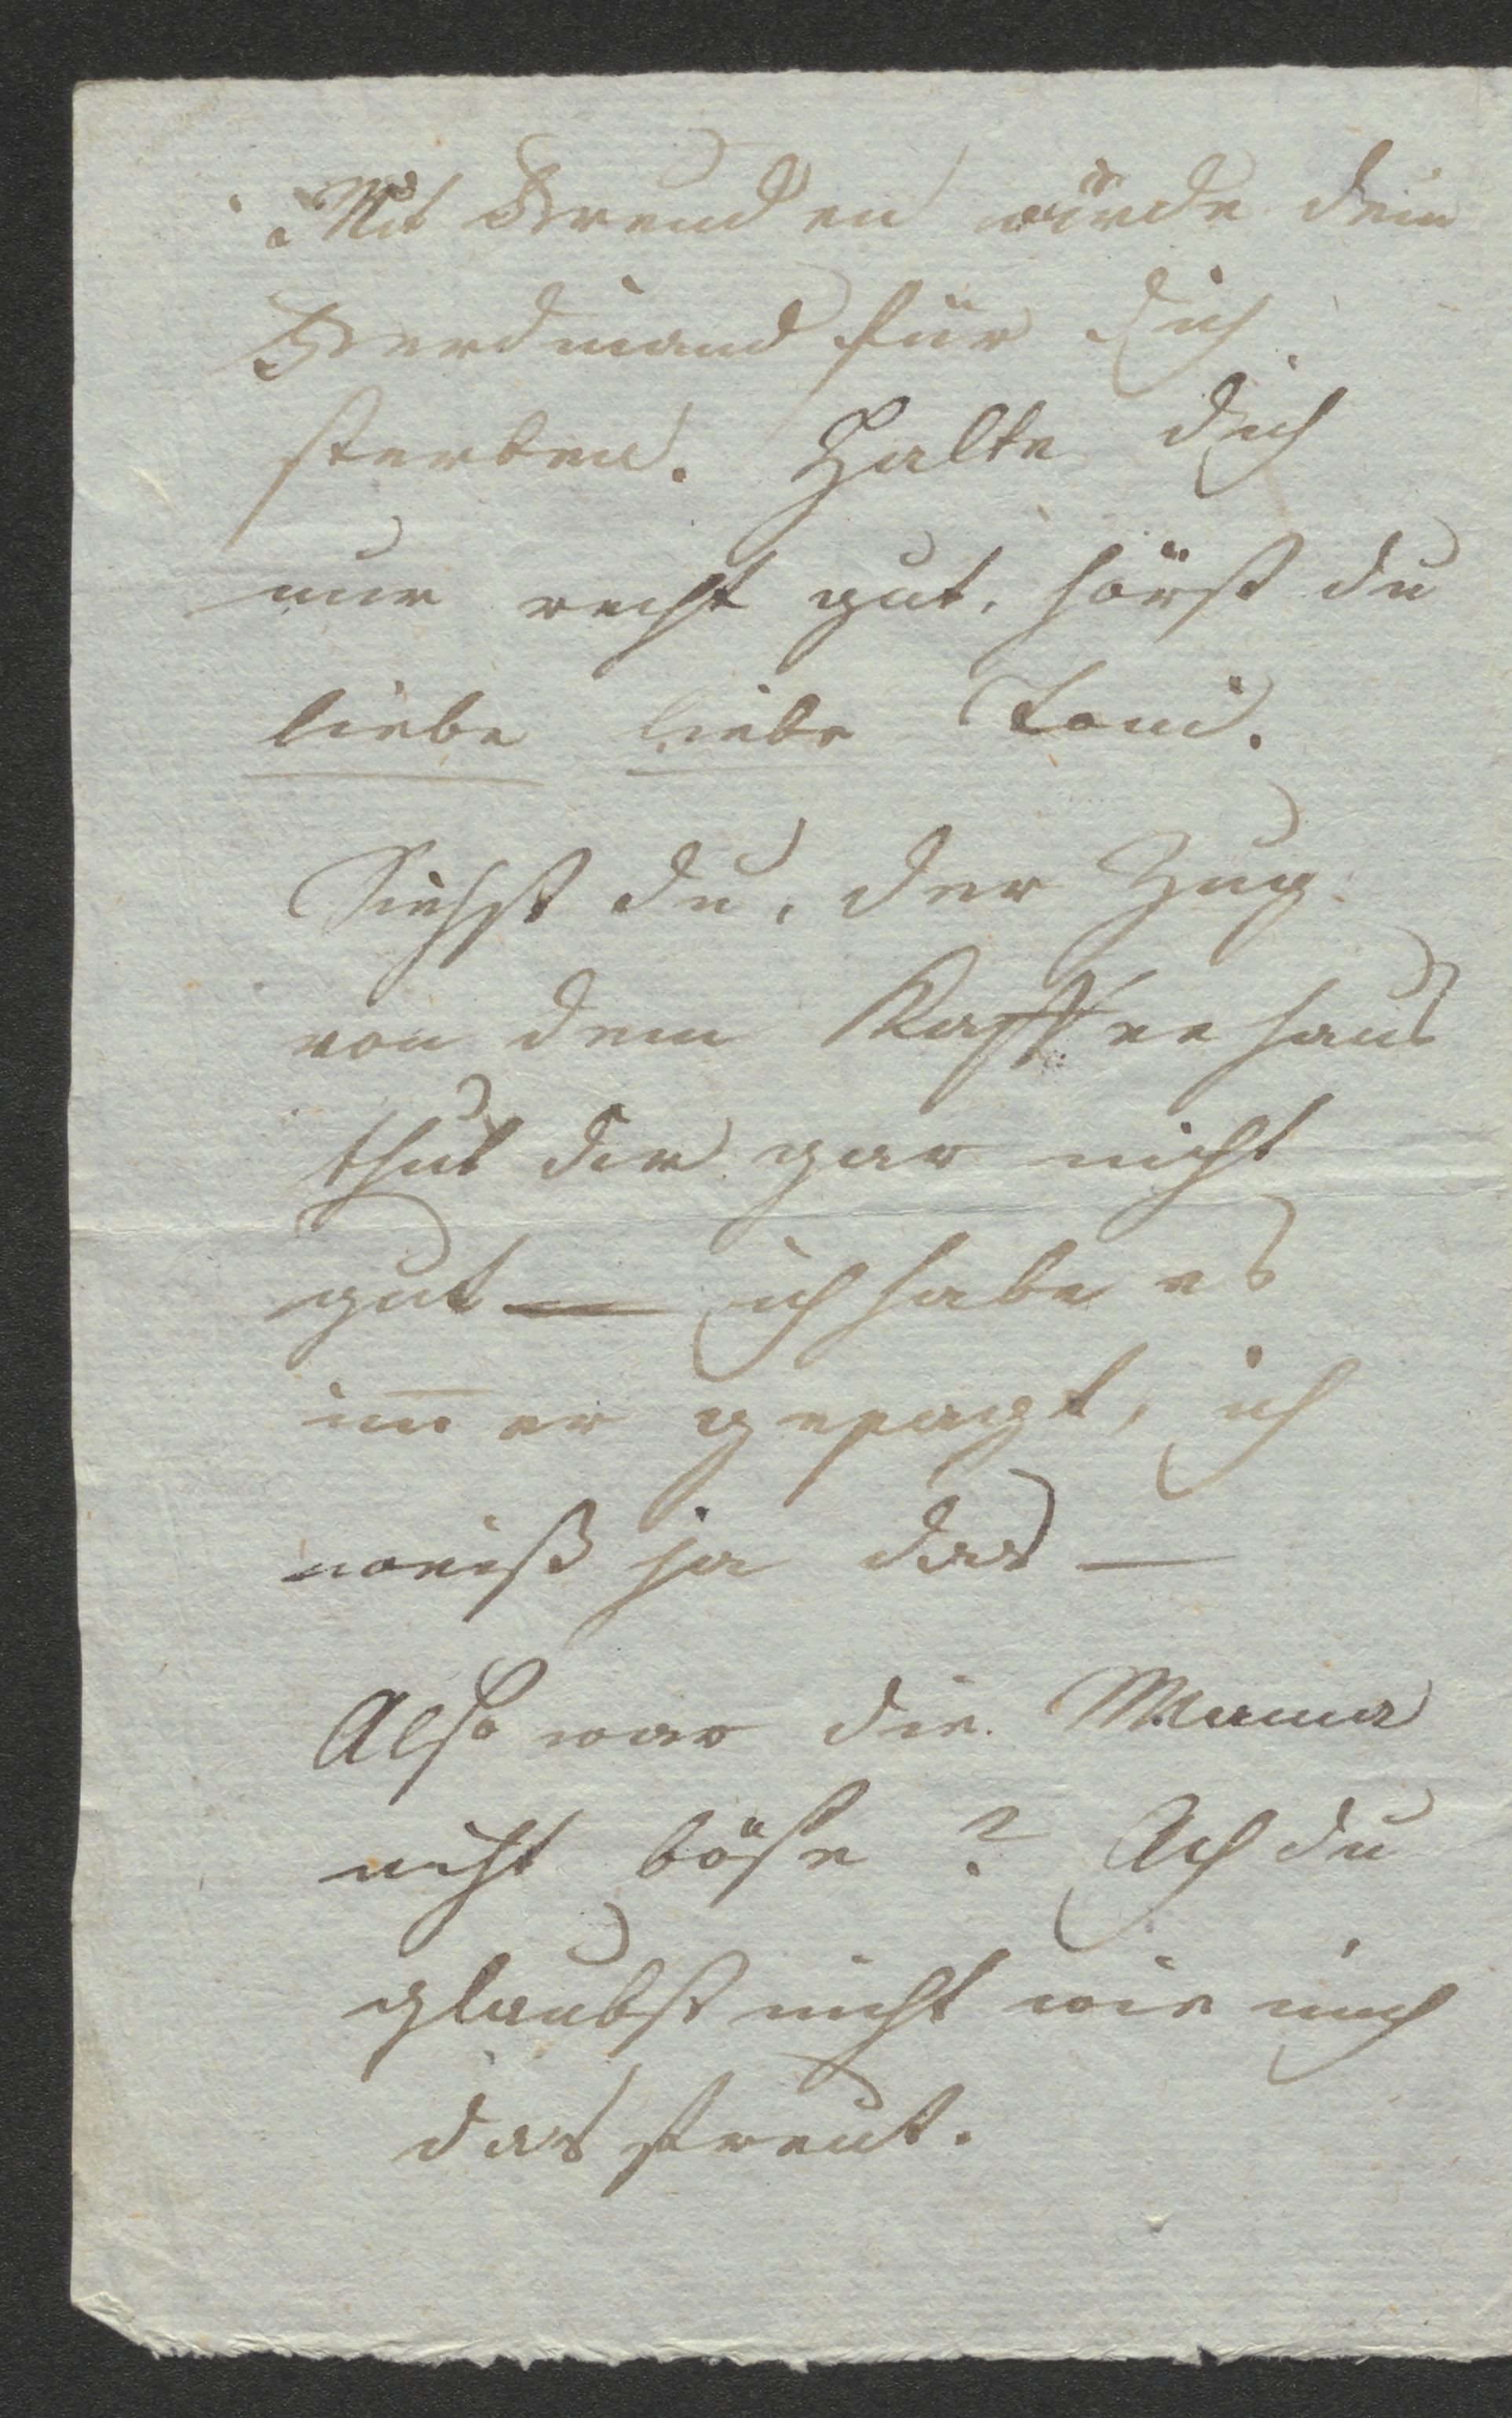 Mit Freuden würde dein
Ferdinand für dich
sterben. Halte dich
nur recht gut, hörst du
liebe liebe Toni.
Siehst du, der Zug
von dem Kaffeehaus
thut dir gar nicht
gut — ich habe es
im̅er gesagt, ich
weiß ja das —
Also war die Mama
nicht böse? Ach du
glaubst nicht wie mich
das freut.